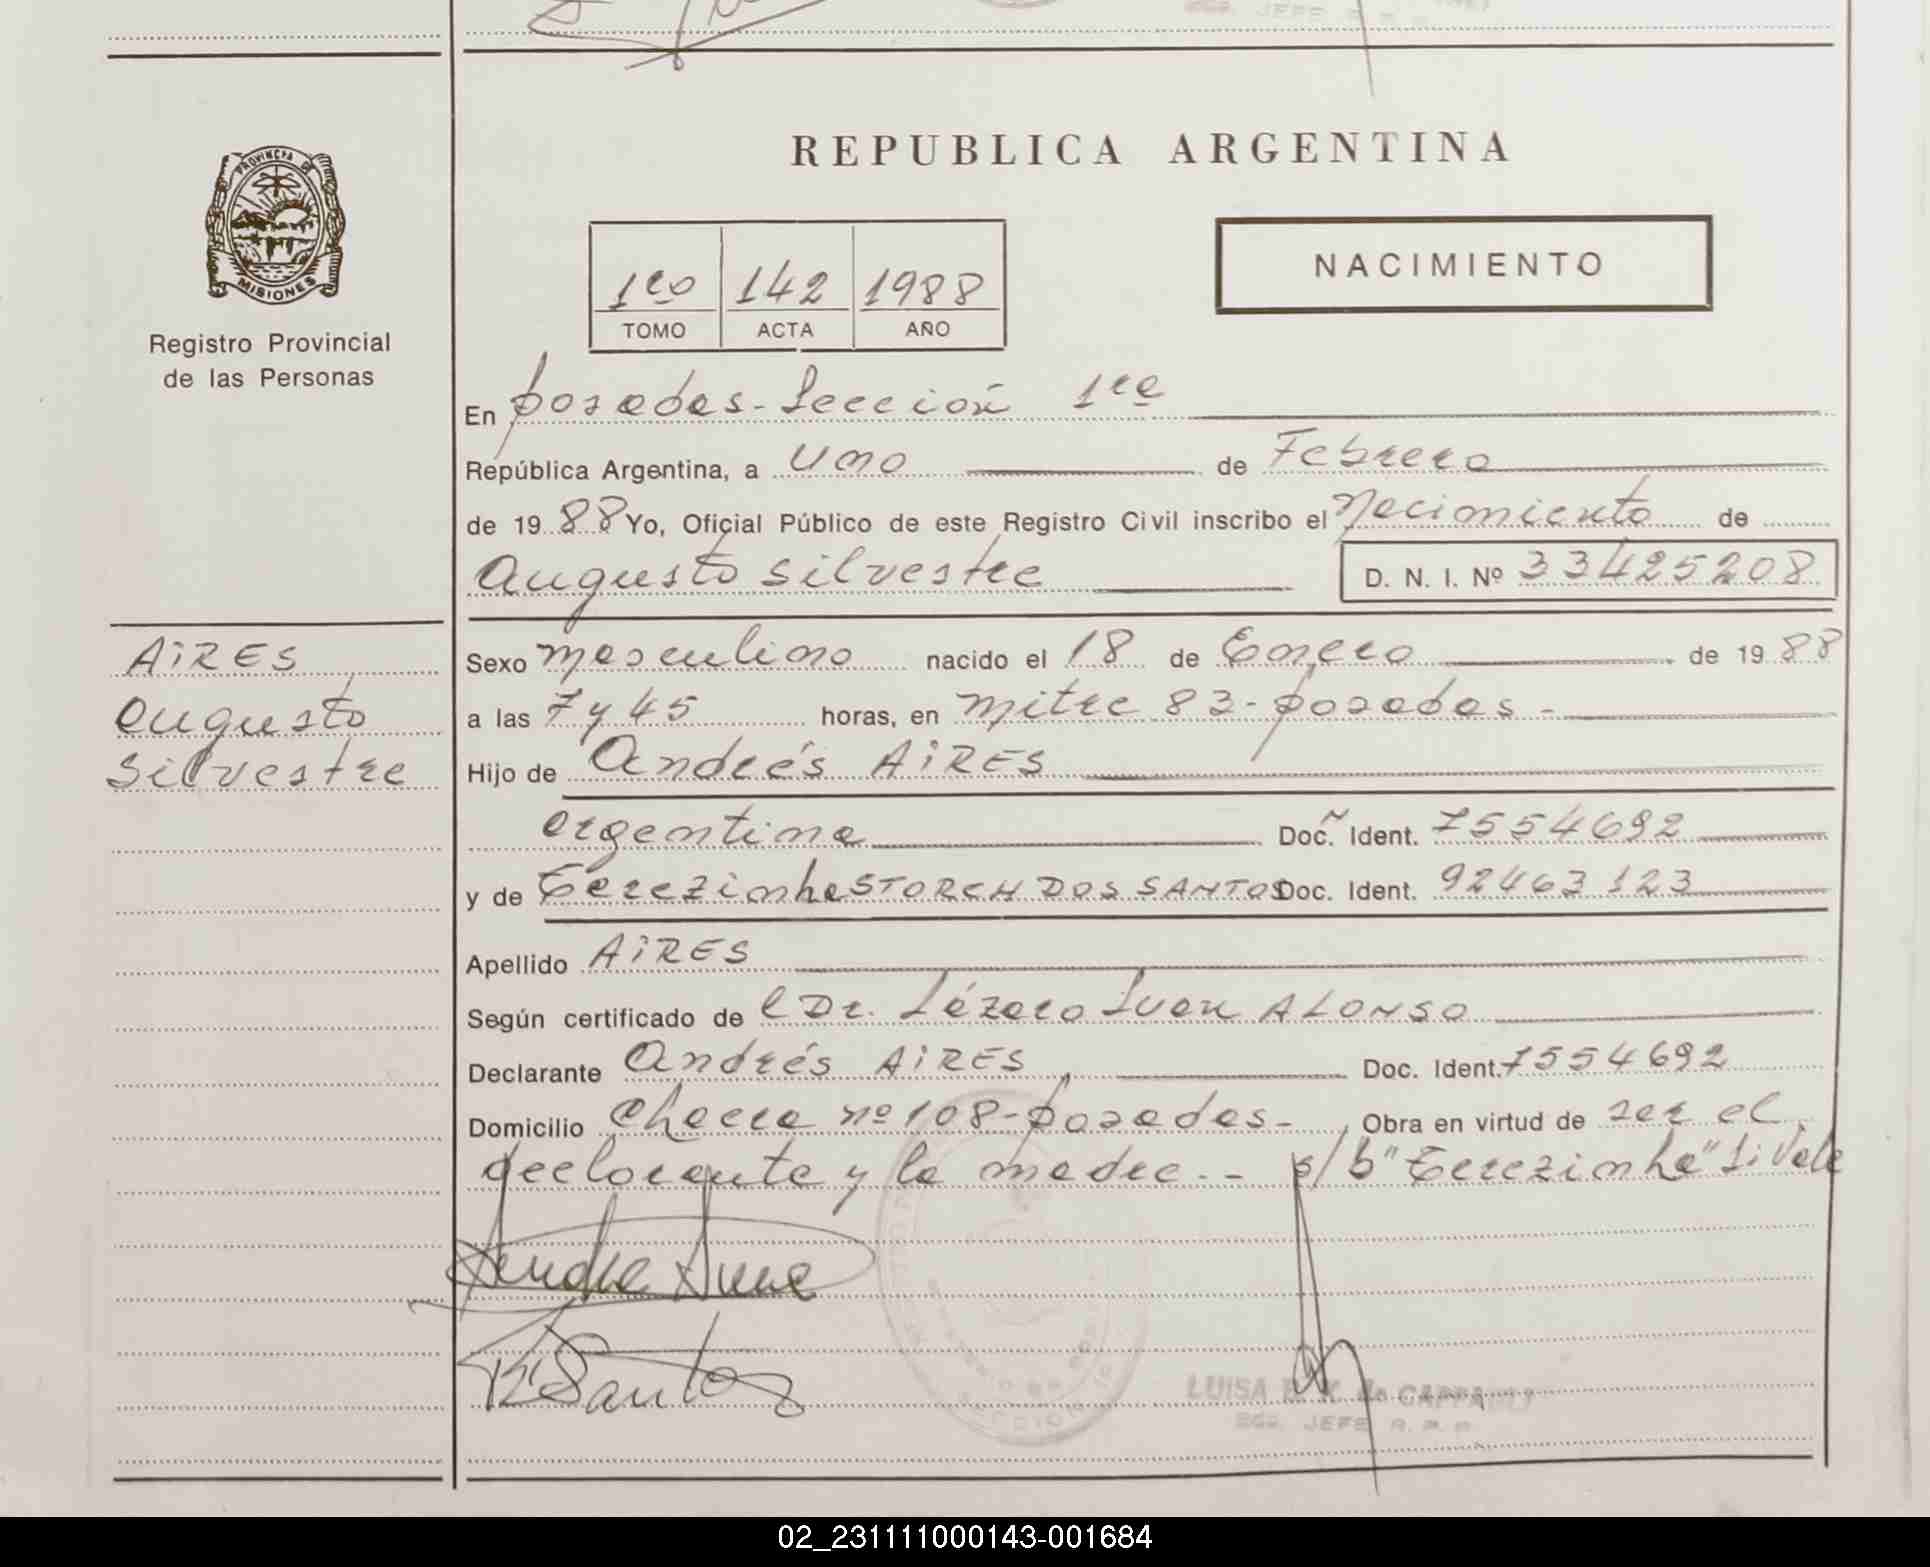 REPUBLICA ARGENTINA
PROVINCIA DE
MISIONES
Registro Provincial
de las Personas
NACIMIENTO
1ro 142 1988
TOMO ACTA AÑO
En posadas - Sección 1ra
República Argentina, a Uno de Febrero
de 1988 Yo, Oficial Público de este Registro Civil inscribo el Nacimiento de
Augusto Silvestre D. N. I. Nº 33425208
AiRES
Augusto
Silvestre
Sexo masculino nacido el 18 de Enero de 1988
a las 7 y 45 horas, en mitre 83 - posadas -
Hijo de Andrés AiRES
argentina Doc. Ident. 7554692
y de Terezinha STORCH DOS SANTOS Doc. Ident. 92463123
Apellido AiRES
Según certificado de l Dr. Lázaro Juan ALONSO
Declarante Andrés AiRES Doc. Ident. 7554692
Domicilio Chacra nº 108 - posadas - Obra en virtud de ser el
declarante y la madre. - s/b "Terezinha" Si Vale
Santos
LUISA
JEFE R. P. P.
02_231111000143-001684